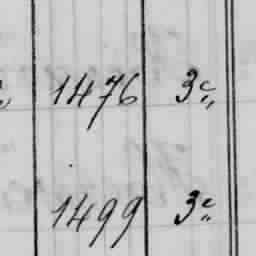 1476 3e
1499 3e